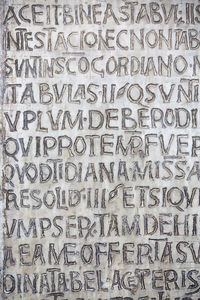 ACEITBINEASTABVLIS
NTESTACIONECNONTAB
SVNTINSCOCORDIANO
TABVLAS·II·QSVNT
VPLVM·DEBEPOD
QVIPROTEMPRFVER
QVODTIDIANAMISSA
RESOLIDIIII ETSIQVI
VMPSERTAMDEHI
AEAMEOFFERTASTA
OINATABELACTERIS